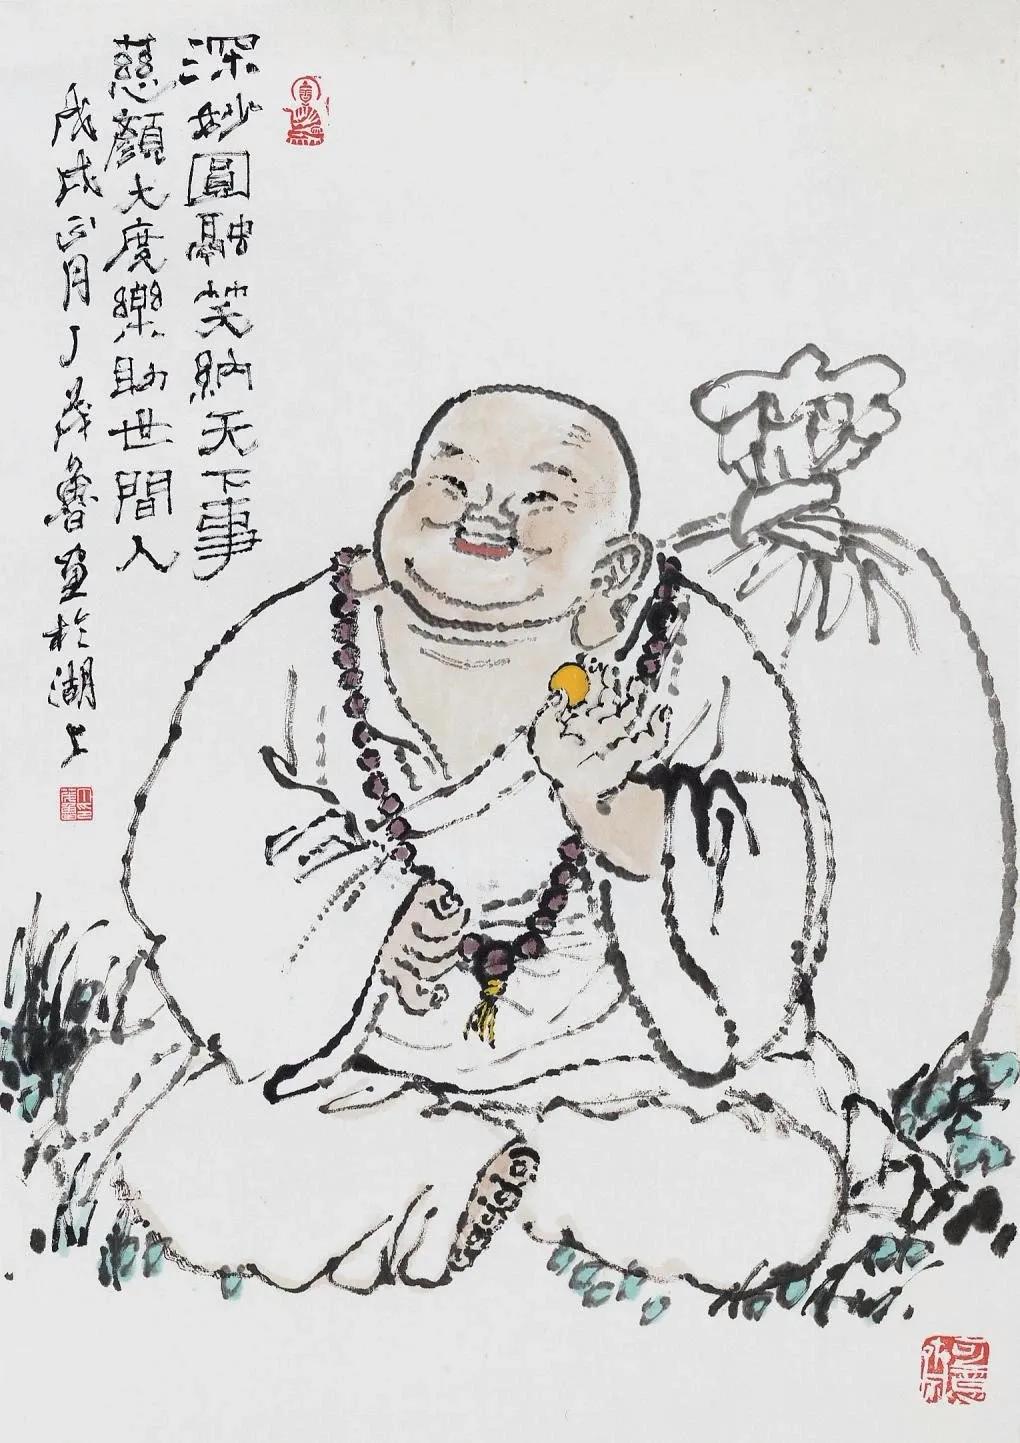 深妙圓融笑納天下事
慈顏大度樂助世間人
戊戌正月丁茂魯画於湖上